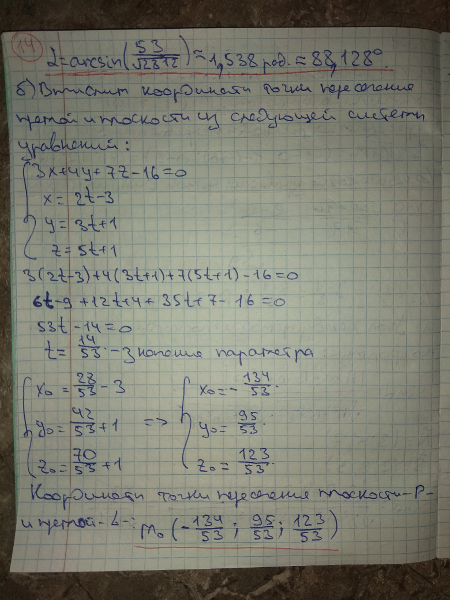 14
α=arcsin(53/√2812)≈1,538 рад.≈88,128°
б) Вычислим координаты точки пересечения
прямой и плоскости из следующей системы
уравнений:
3x+4y+7z-16=0
x=2t-3
y=3t+1
z=5t+1
3(2t-3)+4(3t+1)+7(5t+1)-16=0
6t-9+12t+4+35t+7-16=0
53t-14=0
t=14/53 - значение параметра
x₀=28/53-3 x₀=-134/53
y₀=42/53+1 => y₀=95/53
z₀=70/53+1 z₀=123/53
Координаты точки пересечения плоскости-P-
и прямой-L-: M₀(-134/53; 95/53; 123/53)